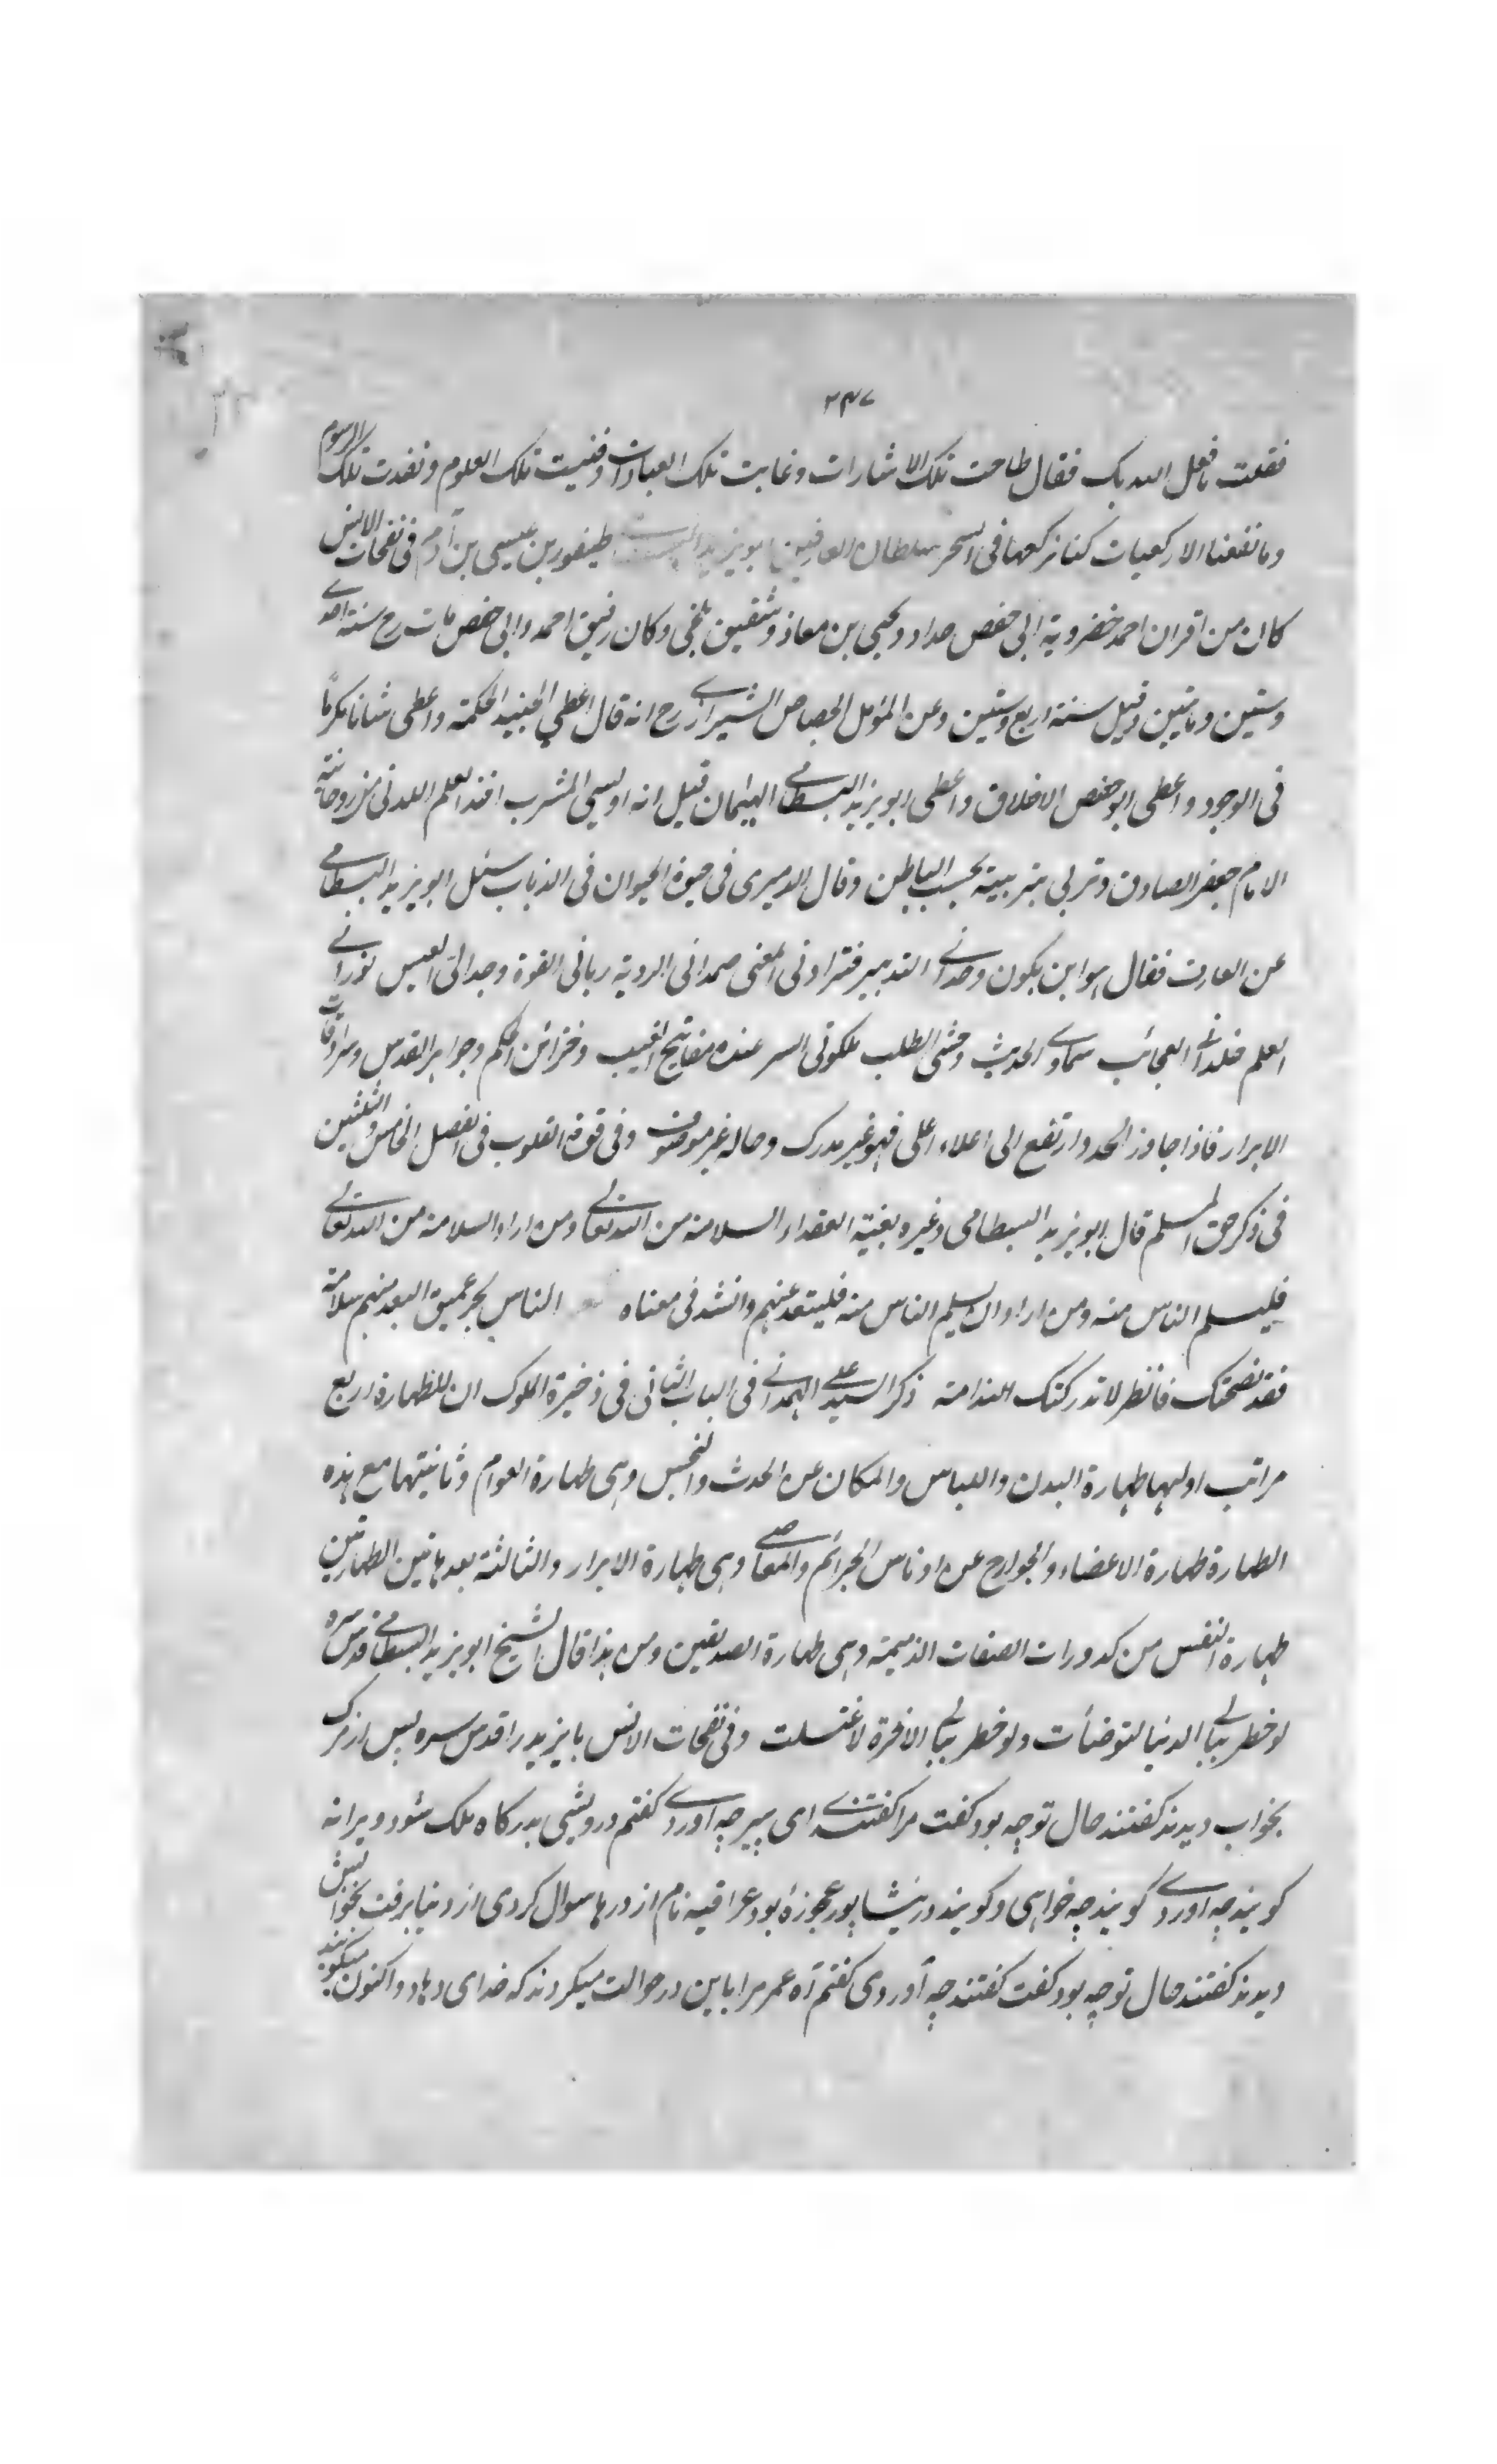 ٢٣٧
فقلت ما فعل الله بك فقال طاحت تلك الاشارات وغابت تلك العبارات وفنيت تلك العلوم ونفدت تلك الرسوم
وما نفعنا الا ركعيات كنا نركعها فى السحر سلطان العارفين ابو يزيد طيفور بن عيسى بن آدم فى نفحات الانس
كان من اقران احمد خضرويه ابى حفص حداد ويحيى بن معاذ وشقيق بلخى وكان رفيق احمد وابى حفص مات رح سنة احدى
وستين وماتين وقيل سنة اربع وستين وعن المؤمل الجصاص الشيرازى رح انه قال اعطى الجنيد الحكمة واعطى شانا مكرما
فى الوجود واعطى ابو حفص الاخلاق واعطى ابو يزيد البسطامى الهيمان قيل انه اويسى المشرب اخذ العلم اللدنى من روحانية
الامام جعفر الصادق وتربى بتربيته بحسب الباطن وقال الدميرى فى حيوة الحيوان فى الذباب سئل ابو يزيد البسطامى
عن العارف فقال هو ان يكون وحدانى التدبير فتراه ادنى المعنى صمدانى الروية ربانى القوة وجدانى العيس نورانى
العلم خلدانى العجائب سماوى الحديث وحشى الطلب ملكوتى السر عنده مفاتيح الغيب وخزائن الحكم وجواهر القدس وسرادقات
الابرار فاذا جاوز الحد وارتفع الى اعلاء اعلى فهو غير مدرك وحاله غير موصوف وفى قوة القلوب فى الفصل الخامس والثلثين
فى ذكر حق المسلم قال ابو يزيد البسطامى وغيره بغية العقداء السلامة من الله تعالى ومن اراد السلامة من الله تعالى
فليسلم الناس منه ومن اراد ان يسلم الناس منه فليبتعد عنهم وانشد فى معناه الناس بحر عميق البعد منهم سلامة
فقد نصحتك فانظر لا تدركنك الندامة ذكر السيد على الهمدانى فى الباب الثانى فى ذخيرة الملوك ان للطهارة اربع
مراتب اولها طهارة البدن واللباس والمكان عن الحدث والنجس وهى طهارة العوام وثانيتها مع هذه
الطهارة طهارة الاعضاء والجوارح عن ادناس الجرائم والمعاصى وهى طهارة الابرار والثالثة بعد هاتين الطهارتين
طهارة النفس من كدورات الصفات الذميمة وهى طهارة الصديقين ومن هذا قال الشيخ ابو يزيد البسطامى قدس سره
لو خطر ببالى الدنيا لتوضأت ولو خطر ببالى الاخرة لاغتسلت وفى نفحات الانس بايزيد را قدس سره پس از مرگ
بخواب ديدند گفتند حال تو چه بود گفت مرا گفتند اى پير چه آوردى گفتم درويشى بدرگاه ملك شود ويرا نه
گويند چه آوردى گويند چه خواهى وگويند در نيشاپور عجوزهٔ بود عراقيه نام از درها سوال كردى از دنيا برفت بخوابش
ديدند گفتند حال تو چه بود گفت گفتند چه آوردى گفتم آه عمر مرا باين در حوالت ميكردند كه خداى دهاد واكنون ميگويند